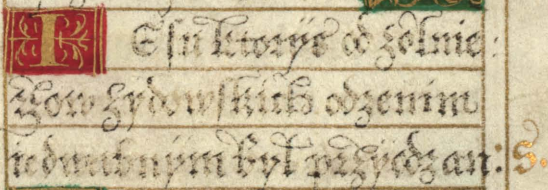 IEsu ktorys od zolnie:
rzow zydowskich odzenim
iedwabnym był przyodzan: s.